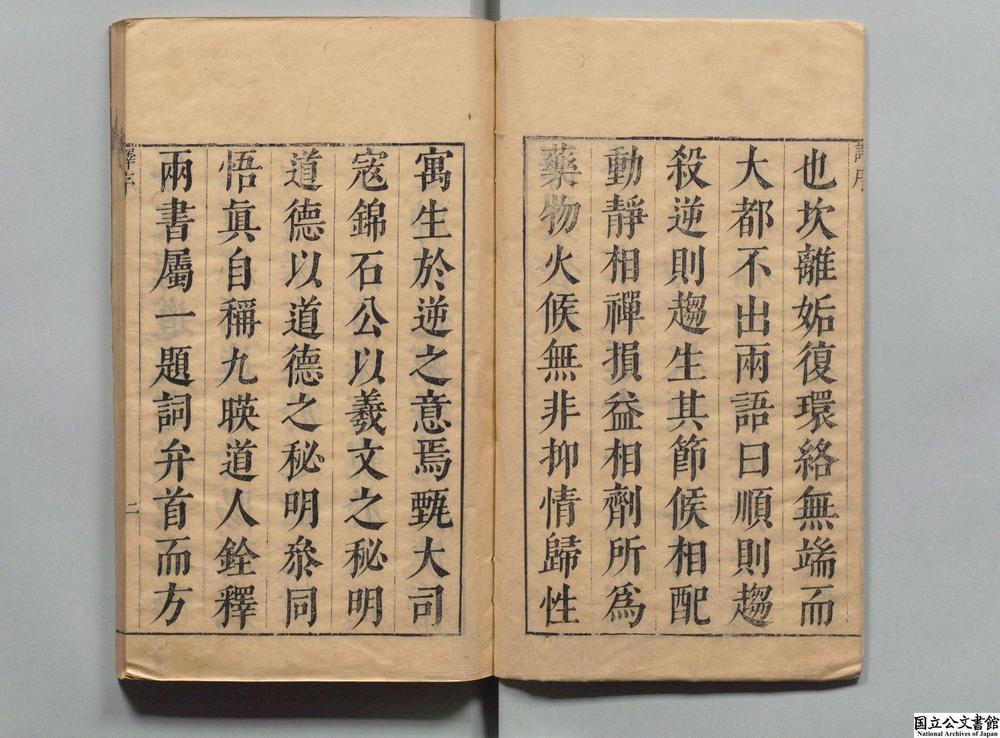 也坎離姤復環絡無端而
大都不出兩語曰順則趨
殺逆則趨生其節候相配
動靜相禪損益相劑所爲
藥物火候無非抑情歸性
寓生於逆之意焉甄大司
寇錦石公以羲文之秘明
道德以道德之秘明叅同
悟眞自稱九暎道人銓釋
兩書屬一題詞弁首而方
二
国立公文書館
National Archives of Japan